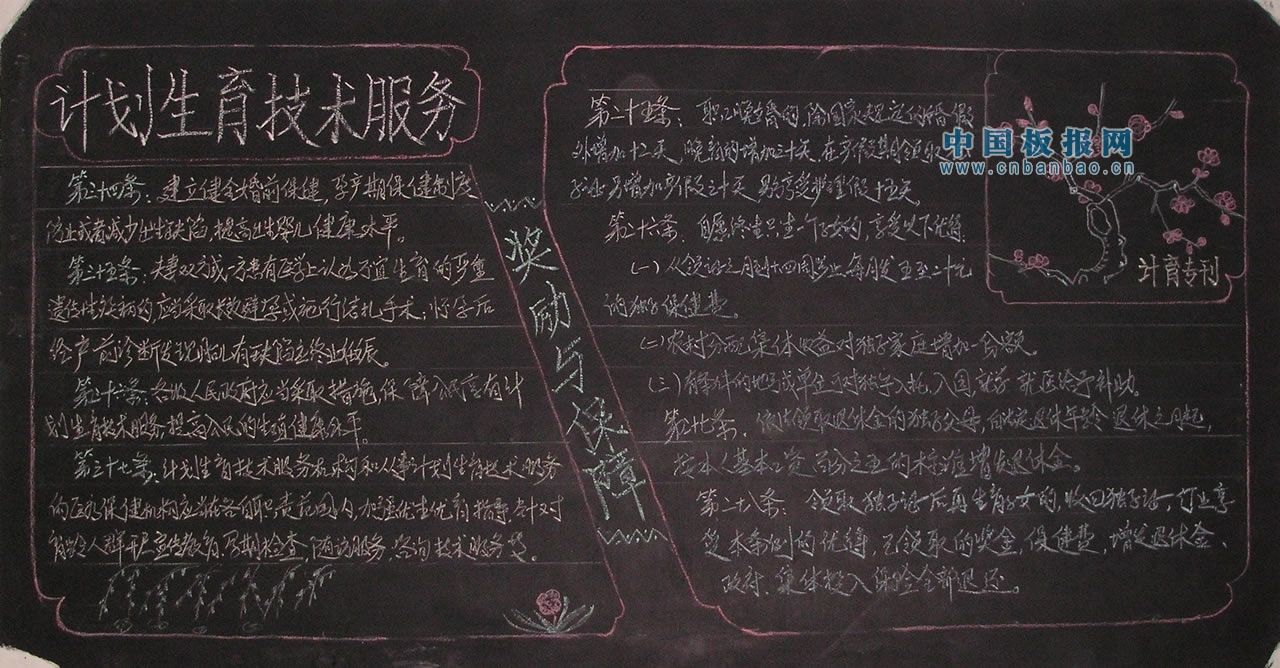 计划生育技术服务
第三十四条：建立健全婚前保健，孕产期保健制度
防止或者减少出生缺陷，提高出生婴儿健康水平。
第三十五条：夫妻双方或一方患有医学上认为不宜生育的严重
遗传性疾病的，应当采取长效避孕或施行结扎手术；怀孕后
经产前诊断发现胎儿有缺陷应终止妊娠。
第三十六条：各级人民政府应当采取措施，保障公民享有计
划生育技术服务，提高公民的生殖健康水平。
第三十七条：计划生育技术服务机构和从事计划生育技术服务
的医疗保健机构应当在各自职责范围内，加强优生优育指导，针对
育龄人群开展宣传教育，孕期检查，随访服务，咨询技术服务等。
奖励与保障
第二十五条：职工晚婚的，除国家规定的婚假
外增加十二天，晚育的增加三十天，在产假期领取
子证另增加产假三十天，男方享受护理假十五天。
第二十六条：自愿终生只生一个子女的，享受以下优待：
（一）从领证之月到十四周岁止，每月发五至二十元
的独子保健费。
（二）农村分配集体收益对独子家庭增加一份额。
（三）有条件的地方或单位可对独子入托、入园、就学、就医给予补助。
第二十七条：依法领取退休金的独子父母，自法定退休年龄退休之月起，
按本人基本工资百分之五的标准增发退休金。
第二十八条：领取独子证后再生育子女的，收回独子证，停止享
受本条例的优待，已领取的奖金，保健费，增发退休金、
政府、集体投入保险全部退还。
计育专刊
中国板报网
www.cnbanbao.cn